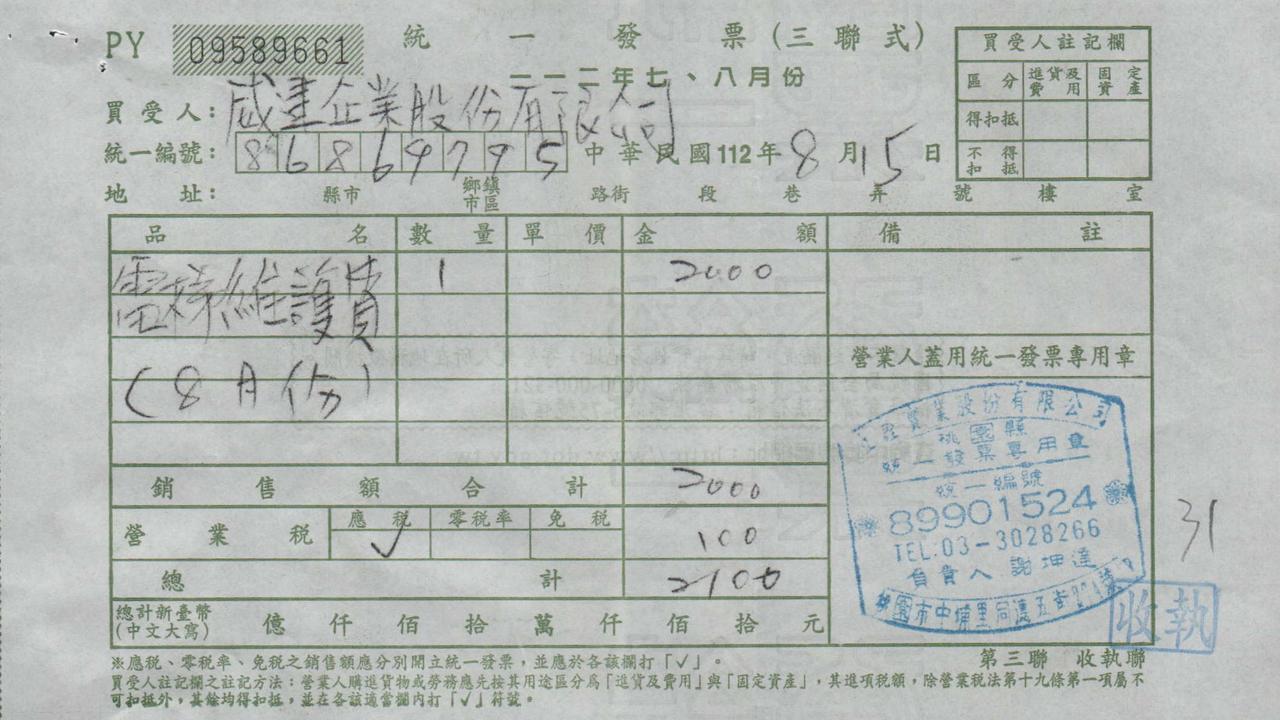 PY 09589661 統一發票(三聯式)
二一二年七、八月份
買受人註記欄
區分 進貨及費用 固定資產
得扣抵
不得扣抵
買受人: 威達企業股份有限公司
統一編號: 86869795 中華民國112年8月15日
地址: 縣市 鄉鎮市區 路街 段 巷 弄 號 樓 室
品名 數量 單價 金額 備註
電梯維護費 1 2000
(8月份)
營業人蓋用統一發票專用章
銷售額合計 2000
營業稅 應稅 零稅率 免稅
✓ 100
總計 2100
總計新臺幣(中文大寫) 億 仟 佰 拾 萬 仟 佰 拾 元
實業股份有限公司
桃園縣
統一發票專用章
統一編號
89901524
TEL:03-3028266
負責人 謝坤達
桃園市中埔里同德五街
31
收執
第三聯 收執聯
※應稅、零稅率、免稅之銷售額應分別開立統一發票,並應於各該欄打「✓」。
買受人註記欄之註記方法:營業人購進貨物或勞務應先按其用途區分為「進貨及費用」與「固定資產」,其進項稅額,除營業稅法第十九條第一項屬不
可扣抵外,其餘均得扣抵,並在各該適當欄內打「✓」符號。